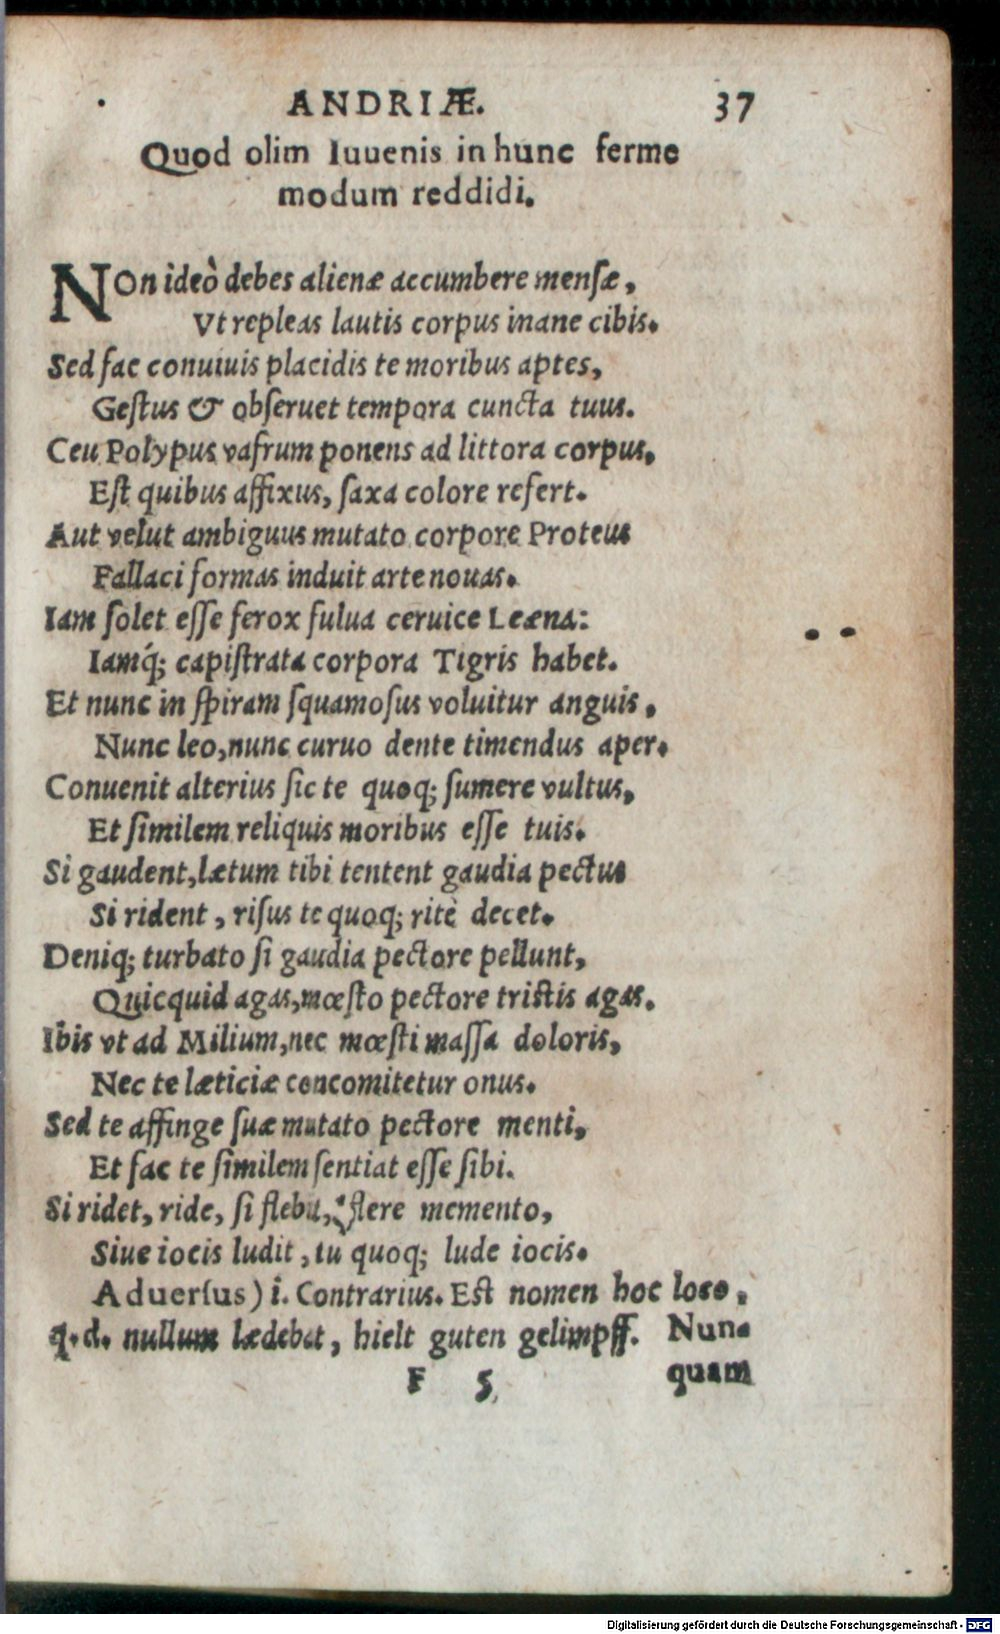 ANDRIÆ. 37
Quod olim Iuuenis in hunc ferme
modum reddidi.
NOn ideò debes alienæ accumbere mensæ,
Vt repleas lautis corpus inane cibis.
Sed fac conuiuis placidis te moribus aptes,
Gestus & obseruet tempora cuncta tuus.
Ceu Polypus vafrum ponens ad littora corpus,
Est quibus affixus, saxa colore refert.
Aut velut ambiguus mutato corpore Proteus
Fallaci formas induit arte nouas.
Iam solet esse ferox fulua ceruice Leæna:
Iamq́; capistrata corpora Tigris habet.
Et nunc in spiram squamosus voluitur anguis,
Nunc leo, nunc curuo dente timendus aper.
Conuenit alterius sic te quoq; sumere vultus,
Et similem reliquis moribus esse tuis.
Si gaudent, lætum tibi tentent gaudia pectus
Si rident, risus te quoq; ritè decet.
Deniq; turbato si gaudia pectore pellunt,
Quicquid agas, mœsto pectore tristis agas.
Ibis vt ad Milium, nec mœsti massa doloris,
Nec te læticiæ concomitetur onus.
Sed te affinge suæ mutato pectore menti,
Et fac te similem sentiat esse sibi.
Si ridet, ride, si flebit, flere memento,
Siue iocis ludit, tu quoq; lude iocis.
Aduersus) i. Contrarius. Est nomen hoc loco,
q. d. nullum lædebat, hielt guten gelimpff. Nun-
F 5 quam
Digitalisierung gefördert durch die Deutsche Forschungsgemeinschaft - DFG